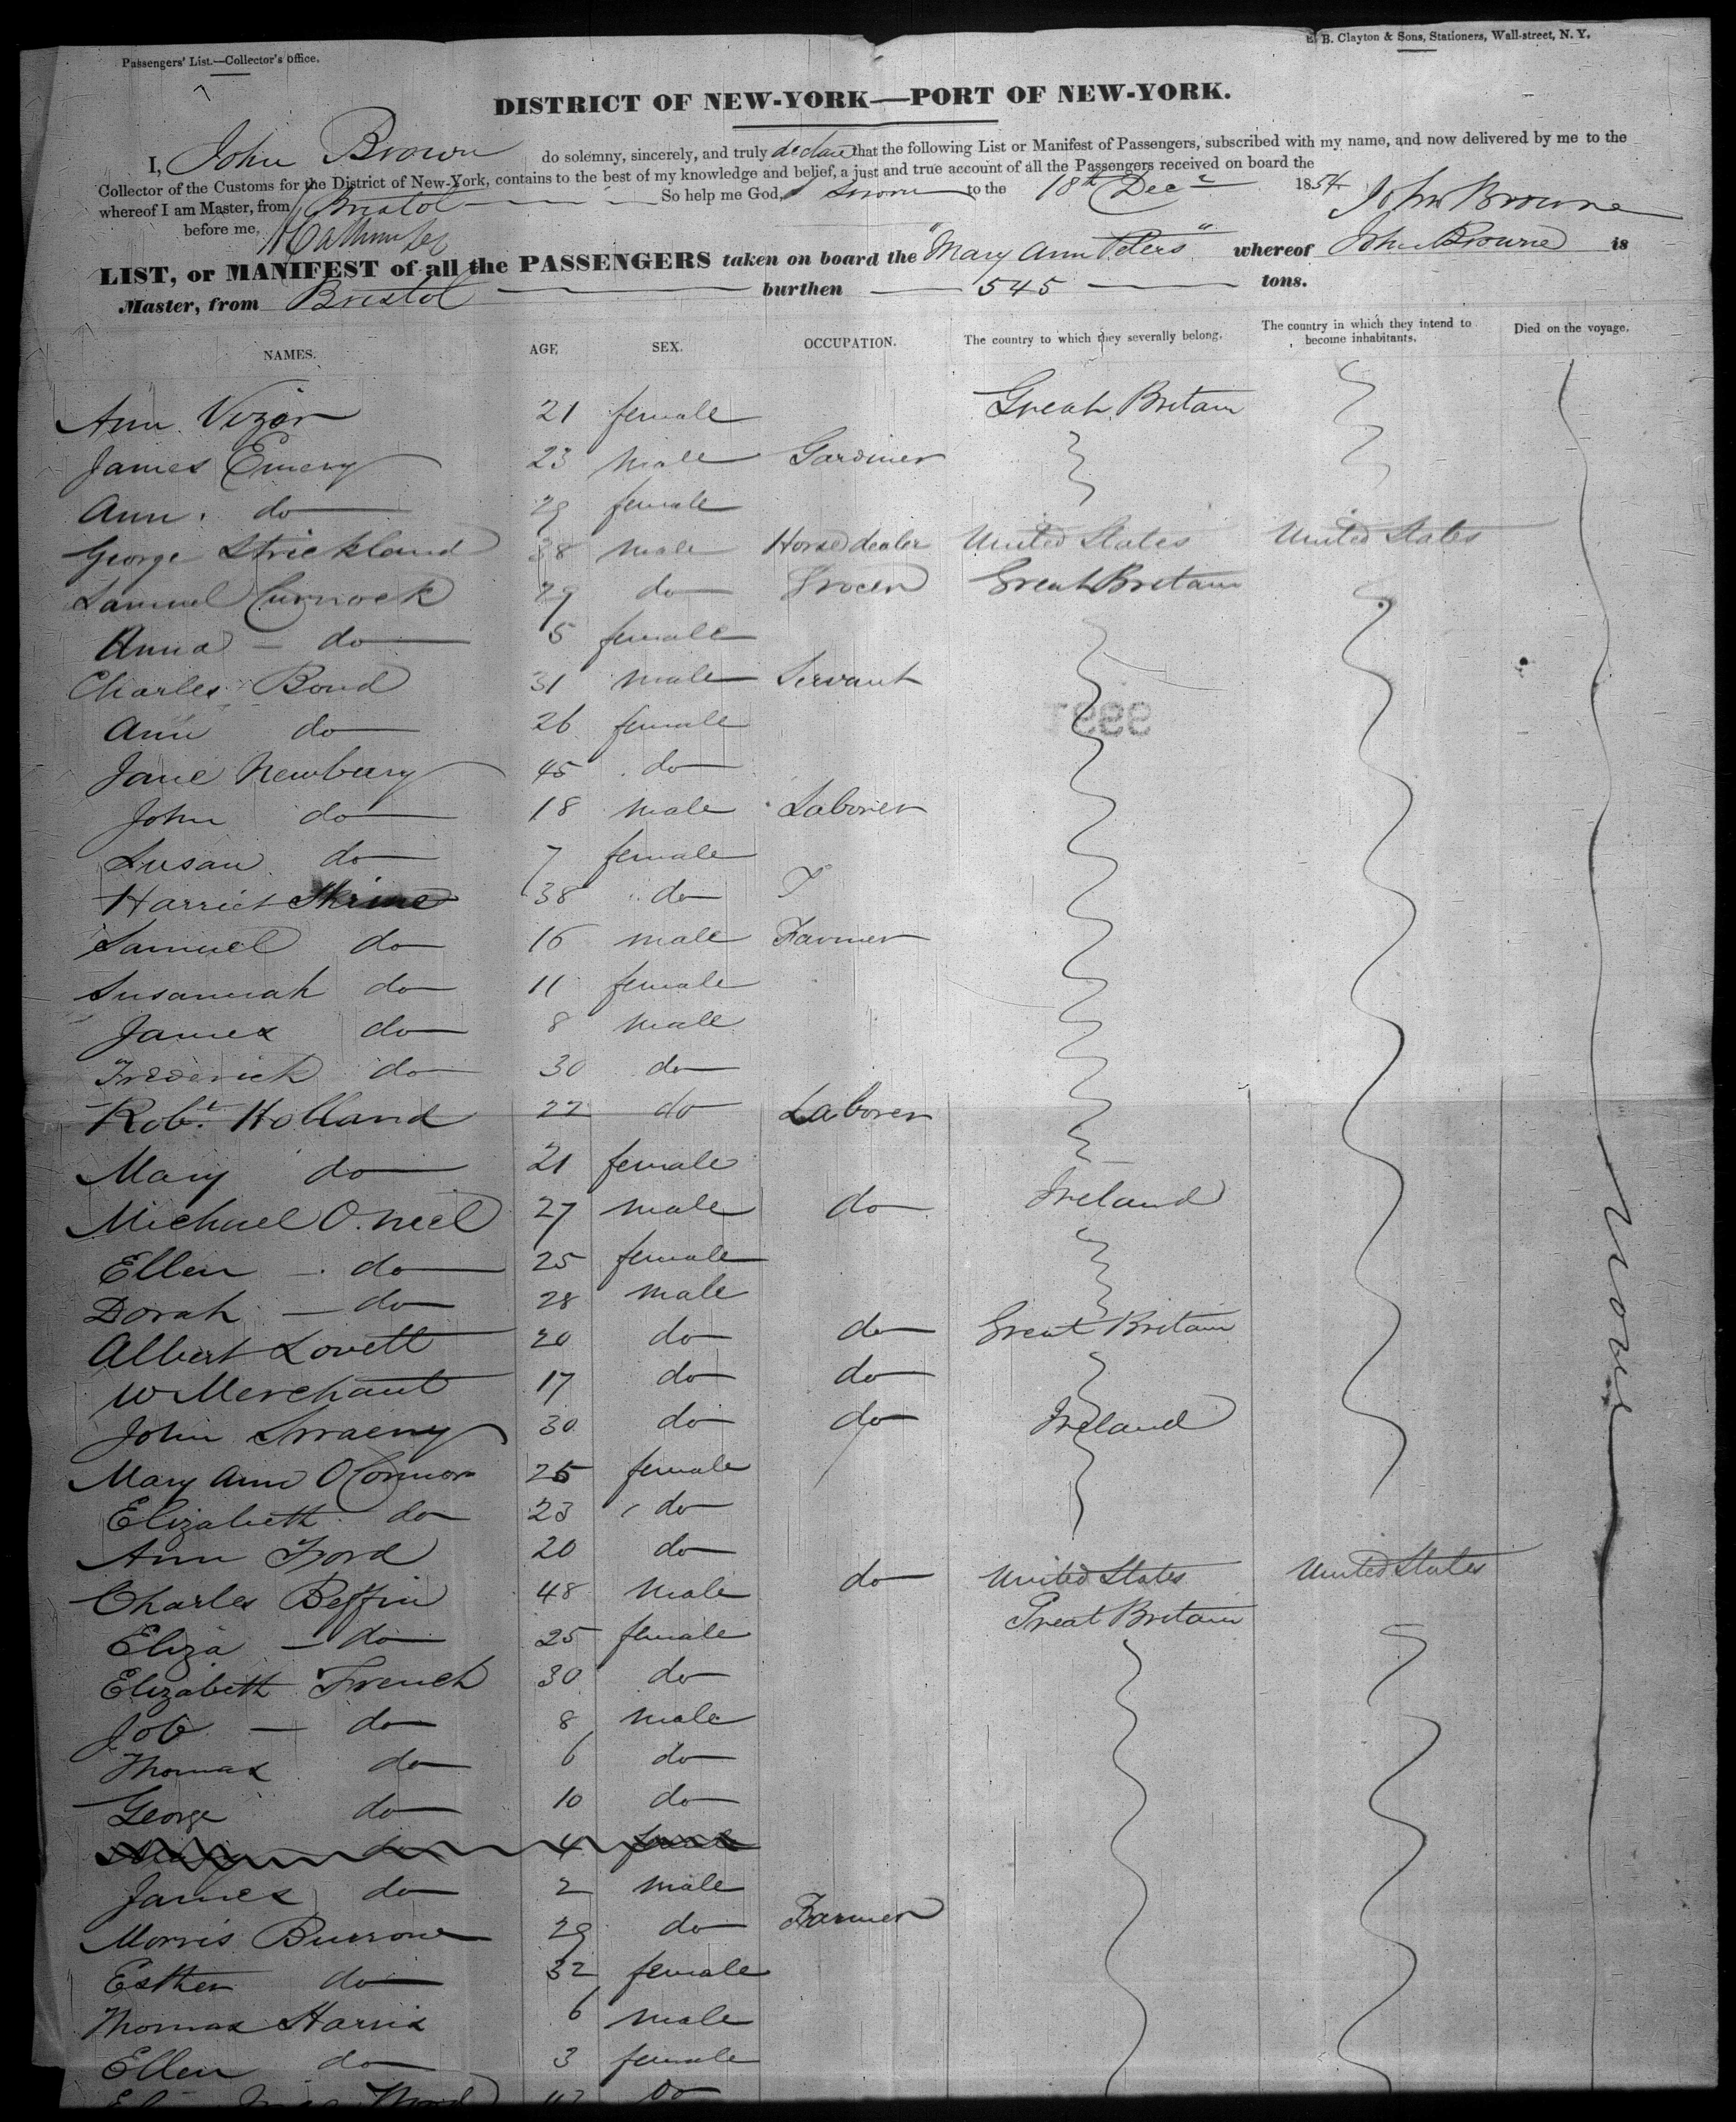 Passengers' List.—Collector's Office.
E. B. Clayton & Sons, Stationers, Wall-street, N. Y.
DISTRICT OF NEW-YORK—PORT OF NEW-YORK.
I, John Brown do solemny, sincerely, and truly declare that the following List or Manifest of Passengers, subscribed with my name, and now delivered by me to the
Collector of the Customs for the District of New-York, contains to the best of my knowledge and belief, a just and true account of all the Passengers received on board the
whereof I am Master, from Bristol So help me God, Sworn to the 18th Decr 1854 John Browne
before me,
LIST, or MANIFEST of all the PASSENGERS taken on board the "Mary Ann Peters" whereof John Browne is
Master, from Bristol burthen 545 tons.
NAMES. AGE SEX. OCCUPATION. The country to which they severally belong. The country in which they intend to become inhabitants. Died on the voyage.
Ann Vizor 21 female Great Britain
James Emery 23 male Gardiner
Ann do 29 female
George Strickland 38 male Horse dealer United States United States
Samuel Curnock 29 do Grocer Great Britain
Anna do 5 female
Charles Bond 31 male Servant
Ann do 26 female
Jane Newbury 45 do
John do 18 male Laborer
Susan do 7 female
Harriet Skrine 38 do
Samuel do 16 male Farmer
Susannah do 11 female
James do 8 male
Frederick do 30 do
Robt. Holland 22 do Laborer
Mary do 21 female
Michael O.neel 27 male do Ireland
Ellen do 25 female
Dorah do 28 male
Albert Lovett 20 do do Great Britain
W Merchant 17 do do
John Swaeny 30 do do Ireland
Mary Ann O'Connor 25 female
Elizabeth do 23 do
Ann Ford 20 do
Charles Beffin 48 male do United States United States
Eliza do 25 female Great Britain
Elizabeth French 30 do
Job do 8 male
Thomas do 6 do
George do 10 do
do 4 female
James do 2 male
Morris Burrone 29 do Farmer
Esther do 32 female
Thomas Harris 6 male
Ellen do 3 female
do
None